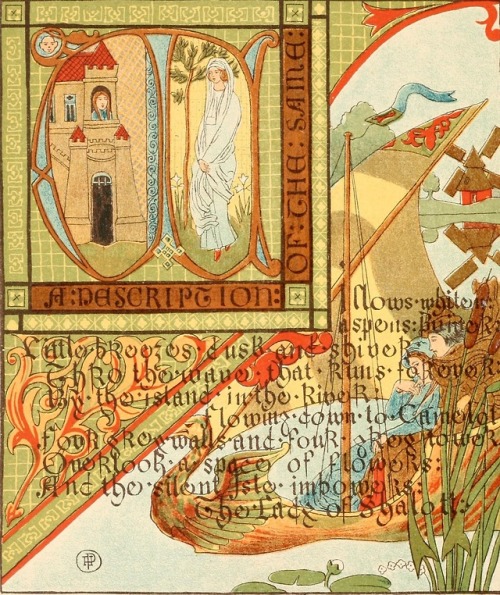 W
OF:THE:SAME:
A:DESCRIPTION:
illows·white
aspens:quiver
Little·breezes·dusk·and·shiver
Thro·the·wave·that·runs·forever
By·the·island·in·the·River:
Flowing·down·to·Camelo
Four·grey·walls·and·four·grey·tower
Overlook·a·space·of·flowers:
And·the·silent·Isle·imbowers:
The·Lady·of·Shalott: